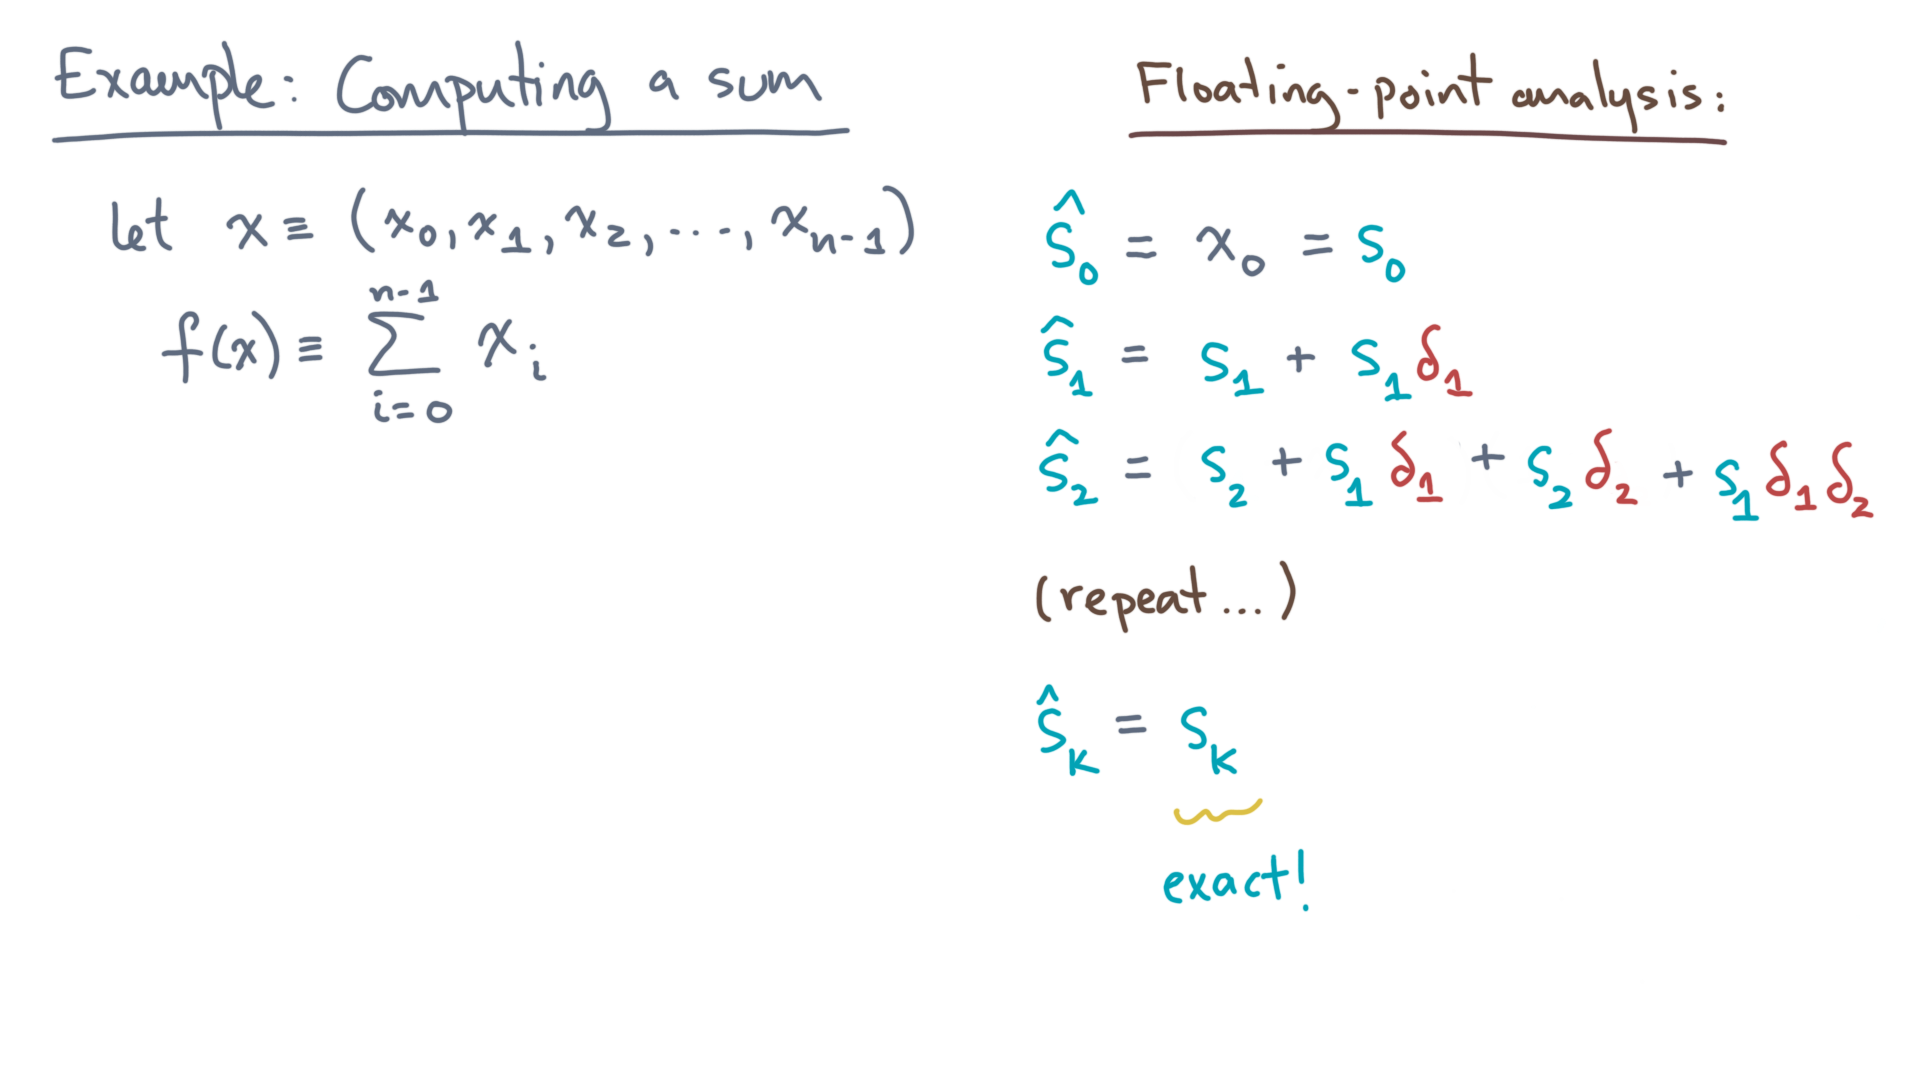 Example: Computing a sum
let x ≡ (x₀, x₁, x₂, ..., xₙ₋₁)
f(x) ≡ ∑_{i=0}^{n-1} xᵢ
Floating-point analysis:
ŝ₀ = x₀ = s₀
ŝ₁ = s₁ + s₁δ₁
ŝ₂ = s₂ + s₁δ₁ + s₂δ₂ + s₁δ₁δ₂
(repeat...)
ŝₖ = sₖ
exact!